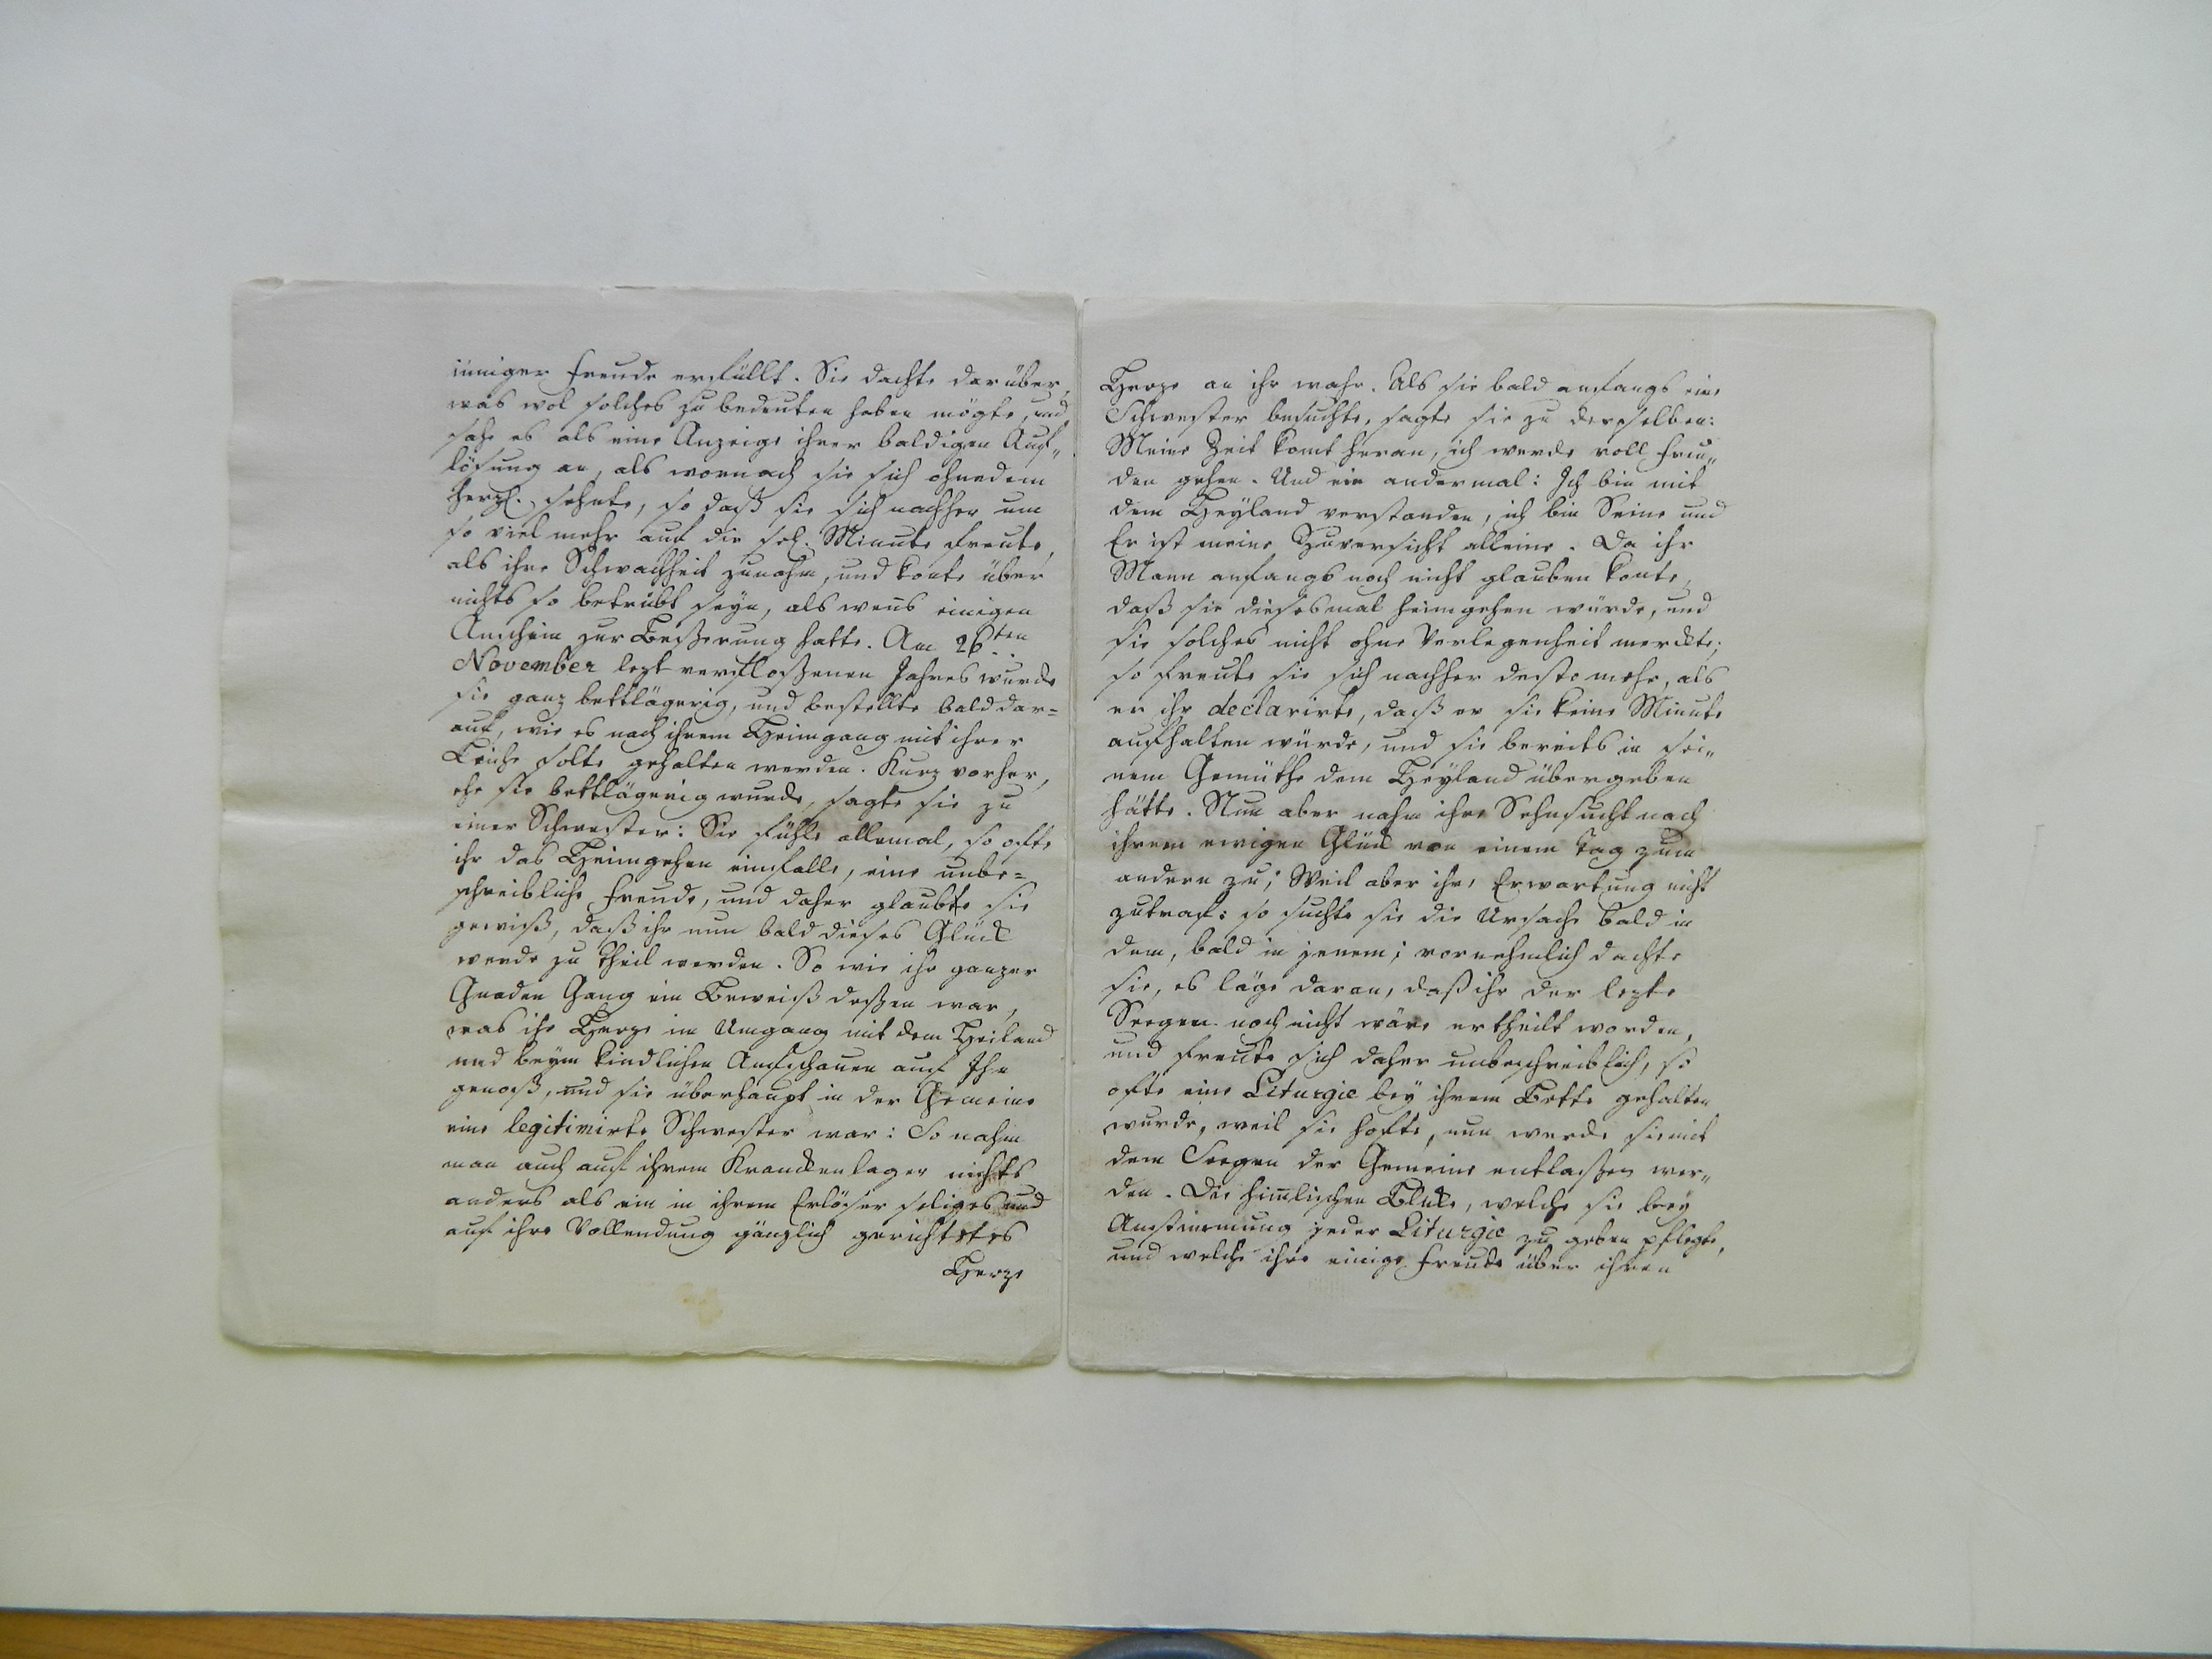 inniger Freude erfüllt. Sie dachte darüber,
was wol solches zu bedeuten haben mögte, und
sahe es als eine Anzeige ihrer baldigen Auf„
lösung an, als wornach sie sich ohnedem
herzl. sehnte, so daß sie sich nachher um
so viel mehr auf die sel. Minute freute,
als ihre Schwachheit zunahm, und konte über
nichts so betrübt seyn, als wens einigen
Anschein zur Beßerung hatte. Am 26ten
November lezt verfloßenen Jahres wurde
sie ganz bettlägerig, und bestellte bald dar=
auf, wie es nach ihrem Heimgang mit ihrer
Leiche solte gehalten werden. Kurz vorher,
ehe sie bettlägerig wurde, sagte sie zu
einer Schwester: Sie fühle allemal, so ofte
ihr das Heimgehen einfalle, eine unbe=
schreibliche Freude, und daher glaubte sie
gewiß, daß ihr nun bald dieses Glück
werde zu theil werden. So wie ihr ganzer
Gnaden Gang ein Beweiß deßen war,
was ihr Herze im Umgang mit dem Heiland
und beym kindlichen Aufschauen auf Ihn
genoß, und sie überhaupt in der Gemeine
eine legitimirte Schwester war: So nahm
man auch auf ihrem Krancken lager nichts
anders als ein in ihrem Erlöser seliges und
auf ihre Vollendung gänzlich gerichtetes
Herze
Herze an ihr wahr. Als sie bald anfangs eine
Schwester besuchte, sagte sie zu derselben:
Meine Zeit komt heran, ich werde voll Freu„
den gehen. Und ein andermal: Ich bin mit
dem Heyland verstanden, ich bin Seine und
Er ist meine Zuversicht alleine. Da ihr
Mann anfangs noch nicht glauben konte,
daß sie diesesmal heimgehen würde, und
sie solches nicht ohne Verlegenheit merckte;
so freute sie sich nachher desto mehr, als
er ihr declarirte, daß er sie keine Minute
aufhalten würde, und sie bereits in sei„
nem Gemüthe dem Heyland übergeben
hätte. Nun aber nahm ihre Sehnsucht nach
ihrem ewigen Glück von einem Tag zum
andern zu; Weil aber ihre Erwartung nicht
zutraf: so suchte sie die Ursache bald in
dem, bald in jenem; vornehmlich dachte
sie, es läge daran, daß ihr der lezte
Seegen noch nicht wäre ertheilt worden,
und freute sich daher unbeschreiblich, so
ofte eine Liturgie bey ihrem Bette gehalten
wurde, weil sie hofte, nun werde sie mit
dem Seegen der Gemeine entlaßen wer„
den. Die himlischen Blicke, welche sie bey
Anstimmung jeder Liturgie zu geben pflegte,
und welche ihre innige Freude über ihren